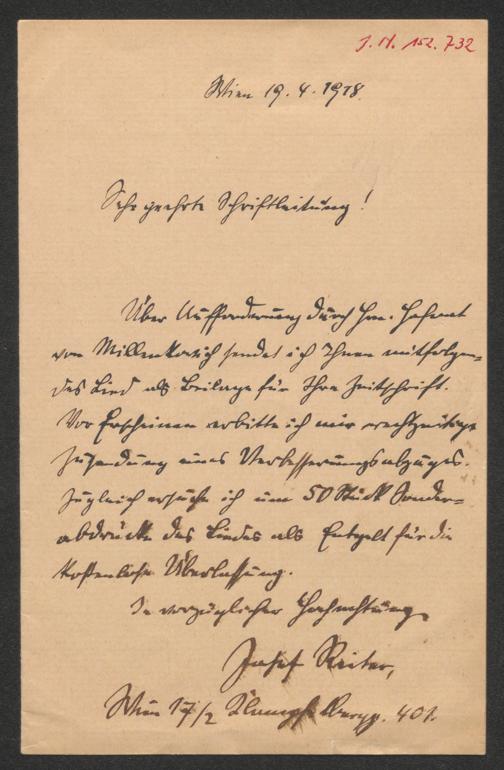 J. N. 152.732
Wien 19. 4. 1918.
Sehr geehrte Schriftleitung!
Über Aufforderung durch Hrn. Hofrat
von Millenkovich sendet ich Ihnen mitfolgen-
des Lied als Beilage für Ihre Zeitschrift.
Vor Erscheinen erbitte ich mir rechtzeitige
Zusendung eines Verbesserungsabzuges.
Zugleich ersuche ich um 50 Stück Sonder-
abdrücke des Liedes als Entgelt für die
kostenlose Überlassung.
In vorzüglicher Hochachtung
Josef Reiter,
Wien 17/2 401.